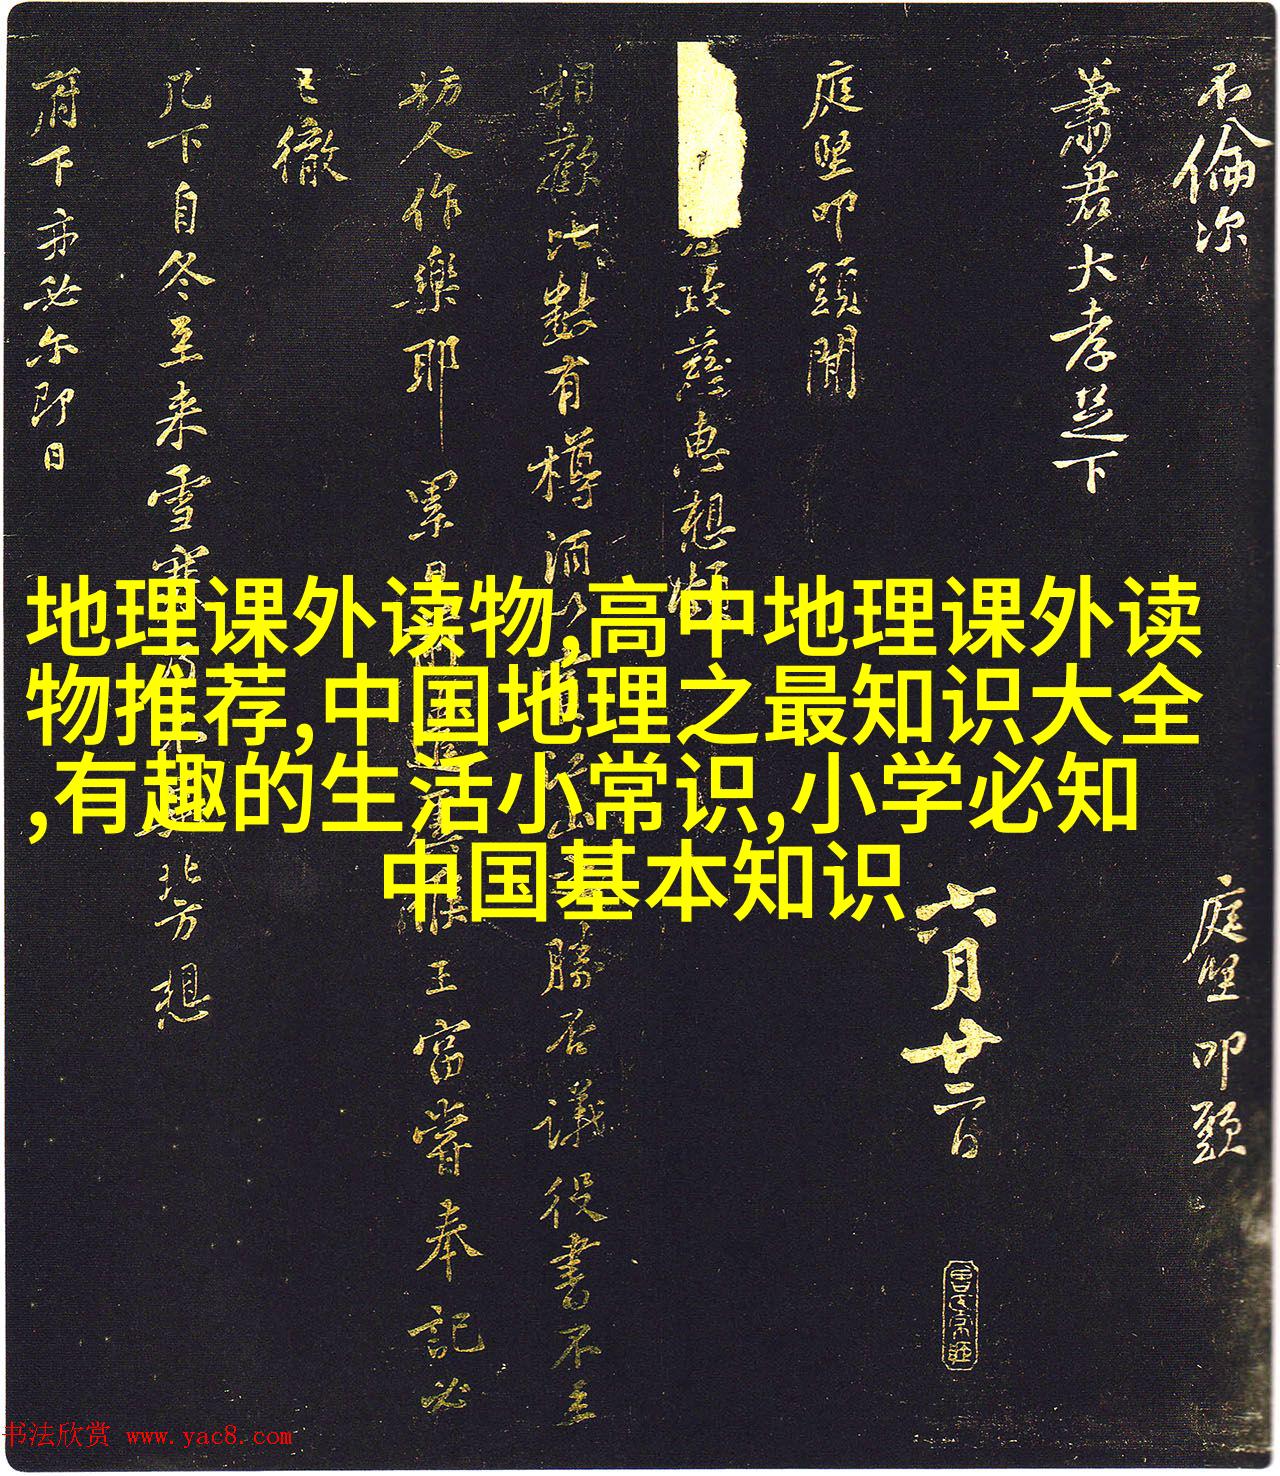 不倫次
庭堅叩頭
蕭君大孝足下
六月廿二日
庭堅叩頭聞
政慈惠想
相歡比數有樽酒
勝否議役書不主
作樂耶累
王富嘗奉記必
已徹
几下自冬至来雪寒
北方想
府下亦必尔即日
地理课外读物,高中地理课外读
物推荐,中国地理之最知识大全
,有趣的生活小常识,小学必知
中国基本知识
书法欣赏 www.yac8.com